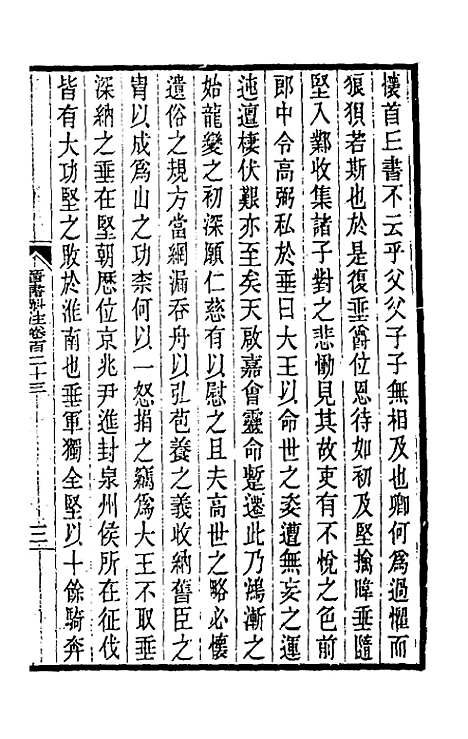 懷首丘書不云乎父父子子無相及也卿何爲過懼而
狼狽若斯也於是復垂爵位恩待如初及堅擒暐垂隨
堅入鄴收集諸子對之悲慟見其故吏有不悅之色前
郎中令高弼私於垂曰大王以命世之姿遭無妄之運
迍邅棲伏艱亦至矣天啟嘉會靈命蹔遷此乃鴻漸之
始龍變之初深願仁慈有以慰之且夫高世之略必懷
遺俗之規方當網漏吞舟以弘苞養之義收納舊臣之
冑以成爲山之功柰何以一怒捐之竊爲大王不取垂
深納之垂在堅朝歷位京兆尹進封泉州侯所在征伐
皆有大功堅之敗於淮南也垂軍獨全堅以十餘騎奔
晉書斠注卷百二十三
三